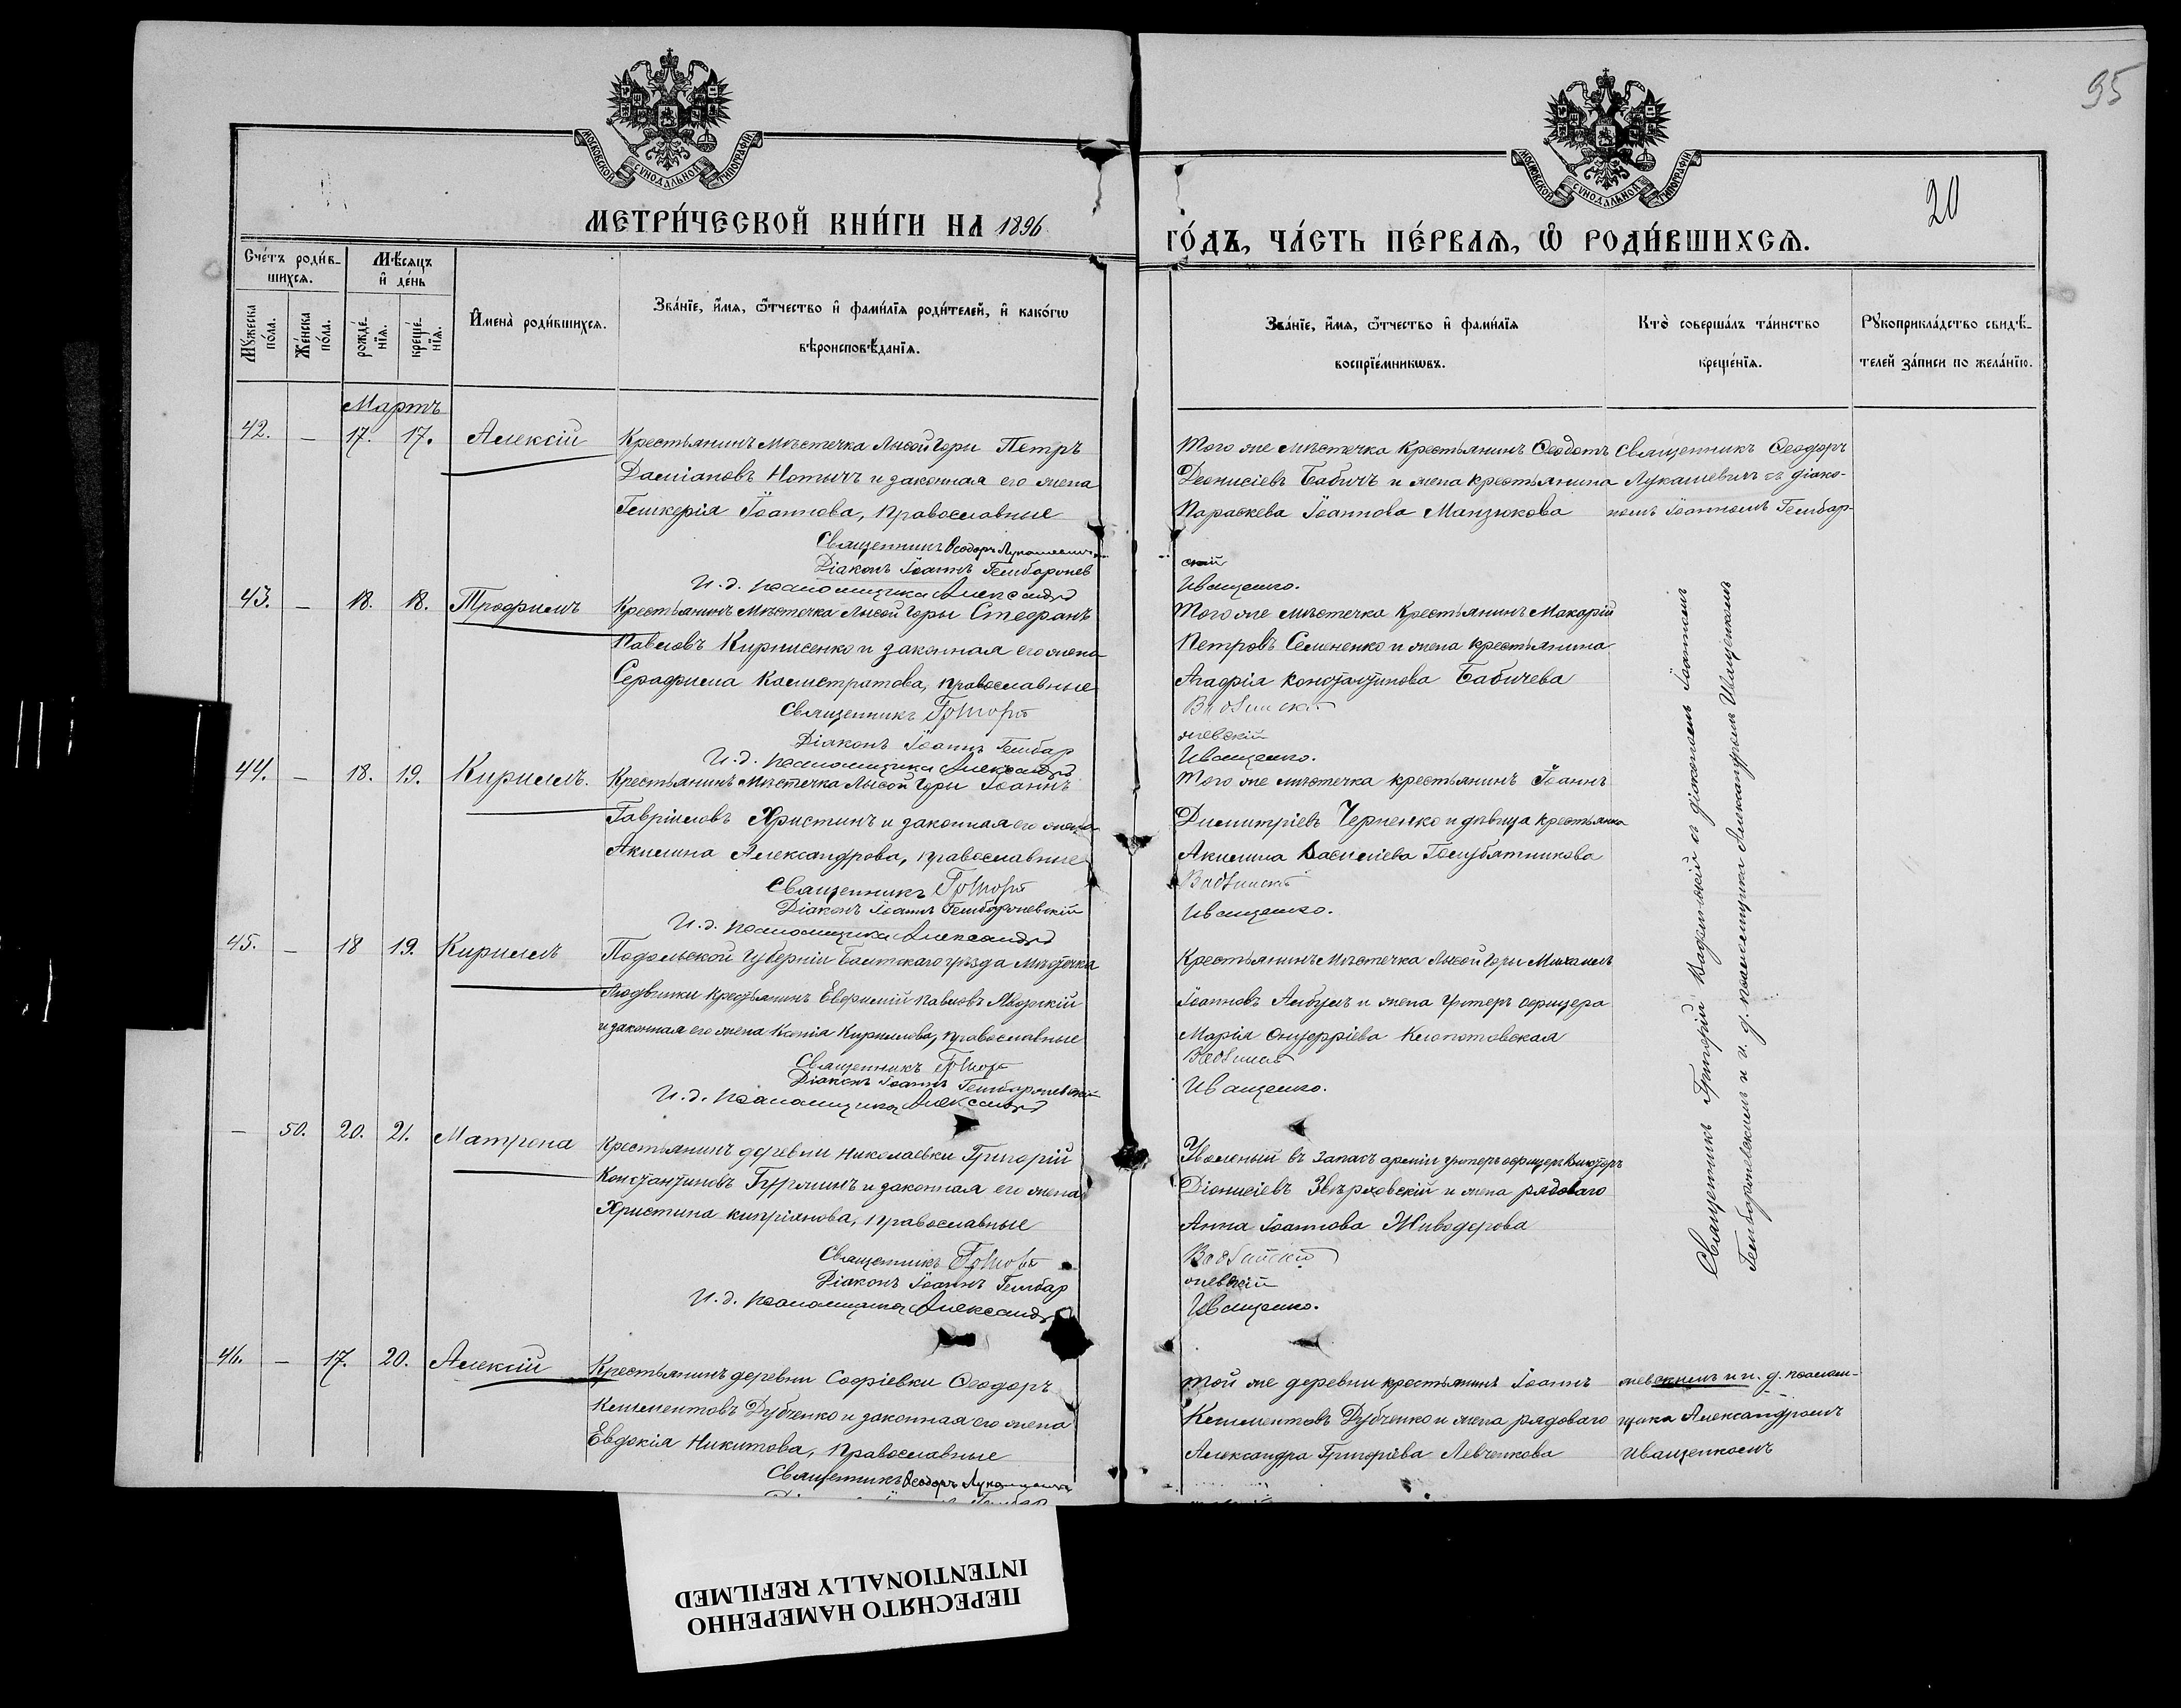 95
МОСКОВСКОЙ СѴНОДАЛЬНОЙ ТИПОГРАФІИ
МОСКОВСКОЙ СѴНОДАЛЬНОЙ ТИПОГРАФІИ
20
МЕТРИ́ЧЕСКОЙ КНИ́ГИ НА 1896
ГО́ДЪ, ЧА́СТЬ ПЕ́РВАѦ, Ѡ҆ РОДИ́ВШИХСѦ.
Сче́тъ роди́в-
шихсѧ.
Мѣ́сѧцъ
и҆ де́нь
Мꙋ́жеска
по́ла.
Же́нска
по́ла.
рожде́-
нїѧ.
креще́-
нїѧ.
И҆мена̀ роди́вшихсѧ.
Зва́нїе, и҆́мѧ, ѻ҆́тчество и҆ фами́лїѧ роди́телей, и҆ како́гѡ
вѣроисповѣ́данїѧ.
Зва́нїе, и҆́мѧ, ѻ҆́тчество и҆ фами́лїѧ
воспрїе́мникѡвъ.
Кто̀ соверша́лъ та́инство
креще́нїѧ.
Рꙋкоприкла́дство свидѣ́-
телей за́писи по жела́нїю.
Мартъ
42. — 17. 17. Алексій
Крестьянинъ мѣстечка Лысой Горы Петръ
Даміановъ Нотычъ и законная его жена
Гликерія Іоаннова, православные
Священникъ Ѳеодоръ Лукашевичъ
Діаконъ Іоаннъ Гембаржев
И. д. псаломщика Александръ
Того же мѣстечка крестьянинъ Ѳеодотъ
Деонисіевъ Бабичъ и жена крестьянина
Параскева Іоаннова Манзюкова
скій
Иващенко.
Священникъ Ѳеодоръ
Лукашевичъ съ діако-
номъ Іоанномъ Гембар-
43. — 18. 18. Трофимъ
Крестьянинъ мѣстечка Лысой Горы Стефанъ
Павловъ Кириленко и законная его жена
Серафима Калистратова, православные
Священникъ
Діаконъ Іоаннъ Гембар
И. д. псаломщика Александръ
Того же мѣстечка крестьянинъ Макарій
Петровъ Семененко и жена крестьянина
Агафія Константинова Бабичева
жевскій
Иващенко.
44. — 18. 19. Кириллъ.
Крестьянинъ мѣстечка Лысой Горы Іоаннъ
Гавріиловъ Христинъ и законная его жена
Акилина Александрова, православные
Священникъ
Діаконъ Іоаннъ Гембаржевскій
И. д. псаломщика Александръ
Того же мѣстечка крестьянинъ Іоаннъ
Димитріевъ Черненко и дѣвица крестьянка
Акилина Василіева Голубятникова
Иващенко.
45. — 18 19. Кириллъ
Подольской губерніи Балтскаго уѣзда мѣстечка
крестьянинъ Евфимій Павловъ
и законная его жена Ксенія Кириллова, православные
Священникъ
Діаконъ Іоаннъ Гембаржевскій
И. д. псаломщика Александръ
Крестьянинъ мѣстечка Лысой Горы Михаилъ
Іоанновъ и жена унтеръ офицера
Марія Онуфріева Клопотовская
Иващенко.
— 50. 20. 21. Матрона
Крестьянинъ деревни Николаевки Григорій
Константиновъ и законная его жена
Христина Кипріанова, православные
Священникъ
Діаконъ Іоаннъ Гембар
И. д. псаломщика Александръ
Уволеный въ запасъ арміи унтеръ офицеръ Викторъ
Діонисіевъ Звѣрховскій и жена рядоваго
Анна Іоаннова Живодерова
жевскій
Иващенко.
Священникъ Григорій съ діакономъ Іоанномъ
Гембаржевскимъ и и. д. псаломщика Александромъ Иващенкомъ
46. — 17. 20. Алексій
Крестьянинъ деревни Софіевки Ѳеодоръ
Климентовъ Дубченко и законная его жена
Евдокія Никитова, православные
Священникъ Ѳеодоръ Лукашевичъ
Той же деревни крестьянинъ Іоаннъ
Климентовъ Дубченко и жена рядоваго
Александра Григоріева Левченкова
жевскимъ и и. д. псалом-
щика Александромъ
Иващенкомъ
ПЕРЕСНЯТО НАМЕРЕННО
INTENTIONALLY REFILMED